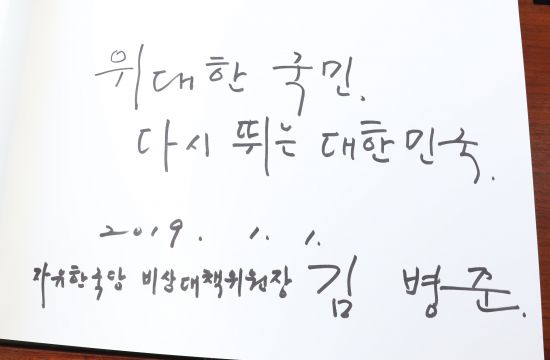 위대한 국민.
다시 뛰는 대한민국.
2019. 1. 1.
자유한국당 비상대책위원장 김 병 준.